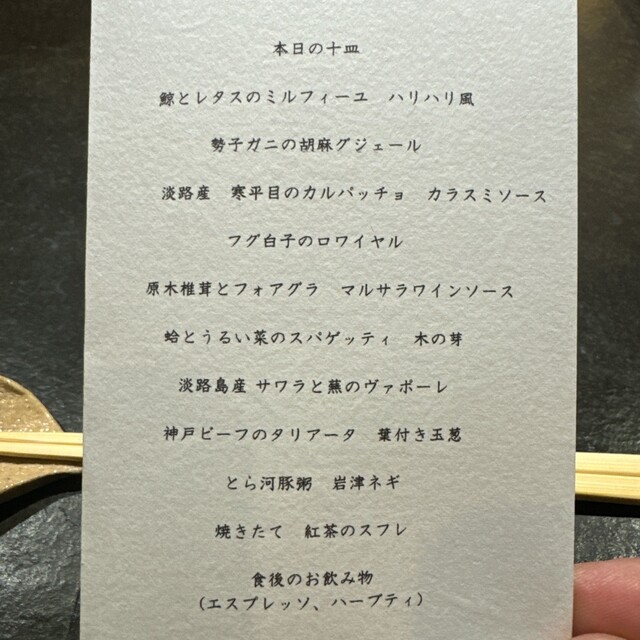 本日の十皿
鯨とレタスのミルフィーユ　ハリハリ風
勢子ガニの胡麻グジェール
淡路産　寒平目のカルパッチョ　カラスミソース
フグ白子のロワイヤル
原木椎茸とフォアグラ　マルサラワインソース
蛤とうるい菜のスパゲッティ　木の芽
淡路島産 サワラと蕪のヴァポーレ
神戸ビーフのタリアータ　葉付き玉葱
とら河豚粥　岩津ネギ
焼きたて　紅茶のスフレ
食後のお飲み物
（エスプレッソ、ハーブティ）